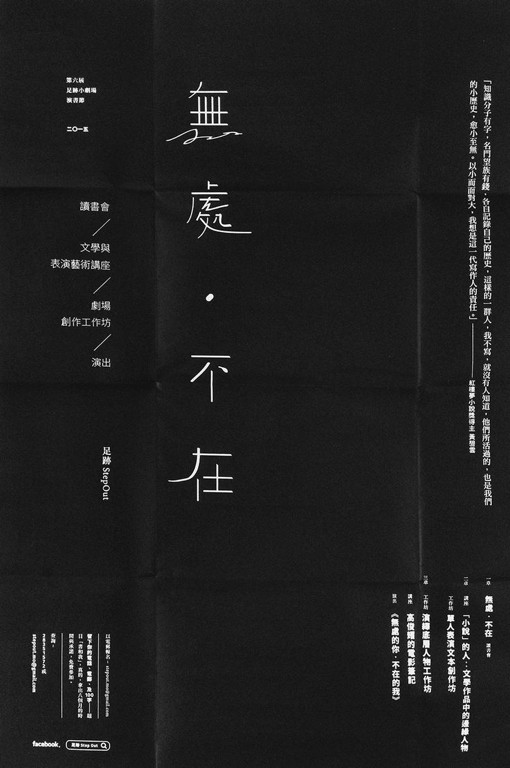 「知識分子有字，名門望族有錢，各自記錄自己的歷史，這樣的一群人，我不寫，就沒有人知道，他們所活過的，也是我們
的小歷史，愈小至無。以小而面對大，我想是這一代寫作人的責任。」———紅樓夢小說獎得主 黃碧雲
無處・不在
第六屆
足跡小劇場
演書節
二〇一五
讀書會
／
文學與
表演藝術講座
／
劇場
創作工作坊
／
演出
足跡 StepOut
一章 無處・不在 讀書會
二章 講座 「小說」的人：文學作品中的邊緣人物
工作坊 單人表演文本創作坊
三章 工作坊 演繹底層人物工作坊
講座 高俊耀的電影筆記
演出 《無處的你・不在的我》
以電郵報名：stepout.mo@gmail.com
留下你的電話、電郵，及100字
查詢：
28255572 或
stepout.mo@gmail.com
facebook.
足跡 Step Out